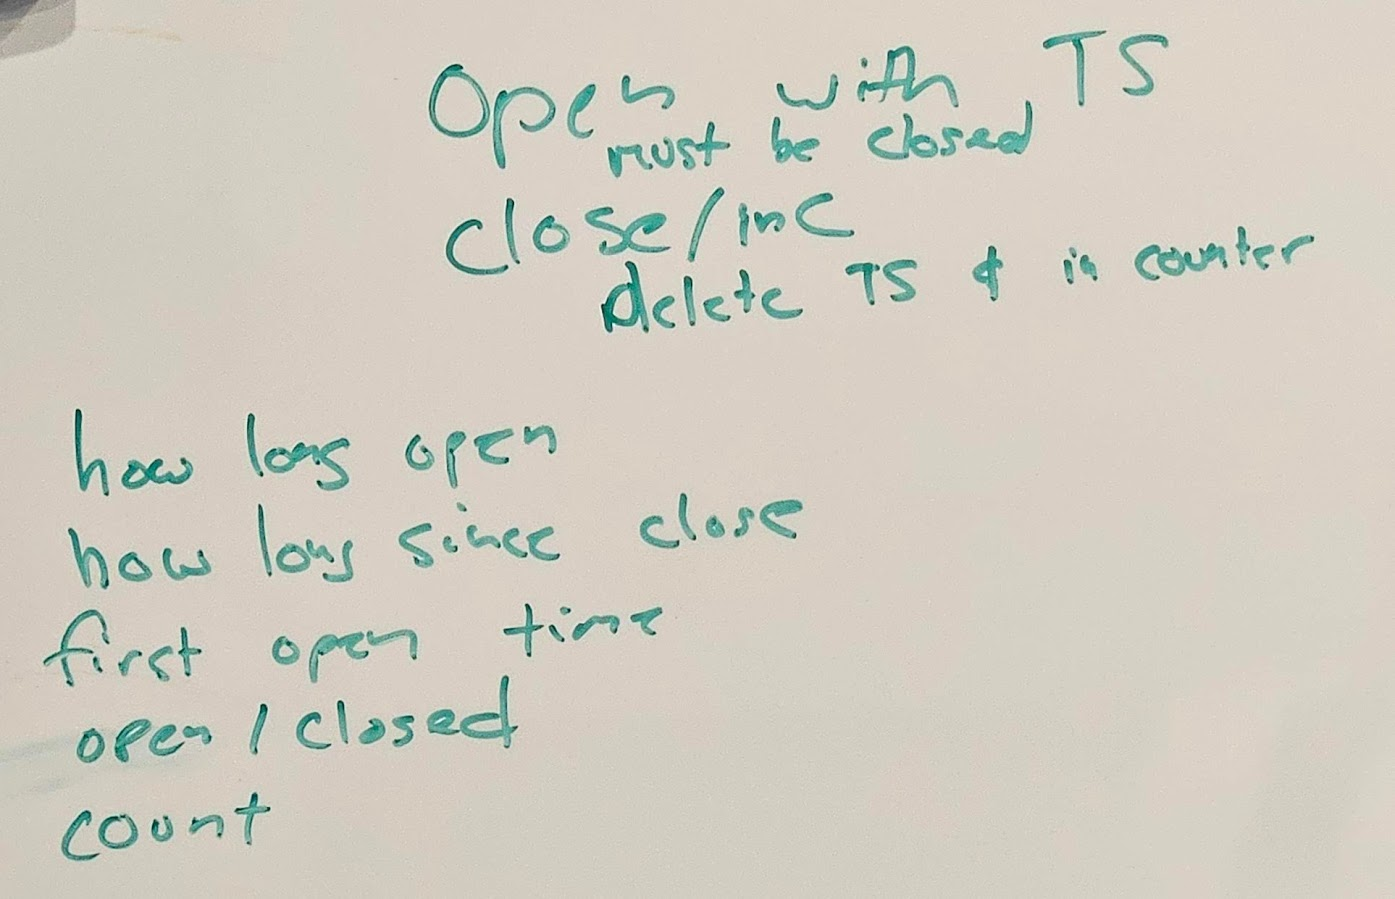 Open with TS
must be closed
close/inc
delete TS & in counter
how long open
how long since close
first open time
open / closed
count